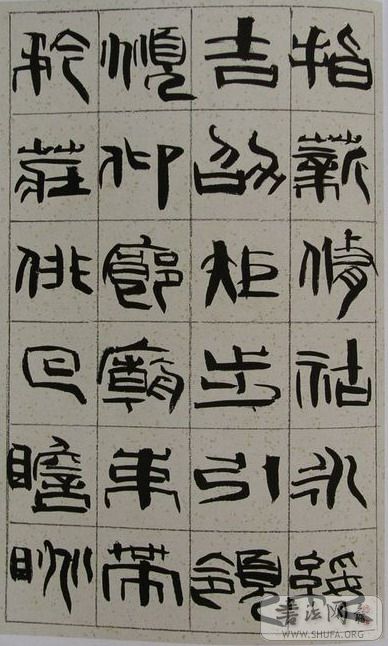 指薪脩祜永綏
吉劭矩步引領
頫仰廊廟束帶
矜莊俳回瞻眺
書法网
WWW.SHUFA.ORG